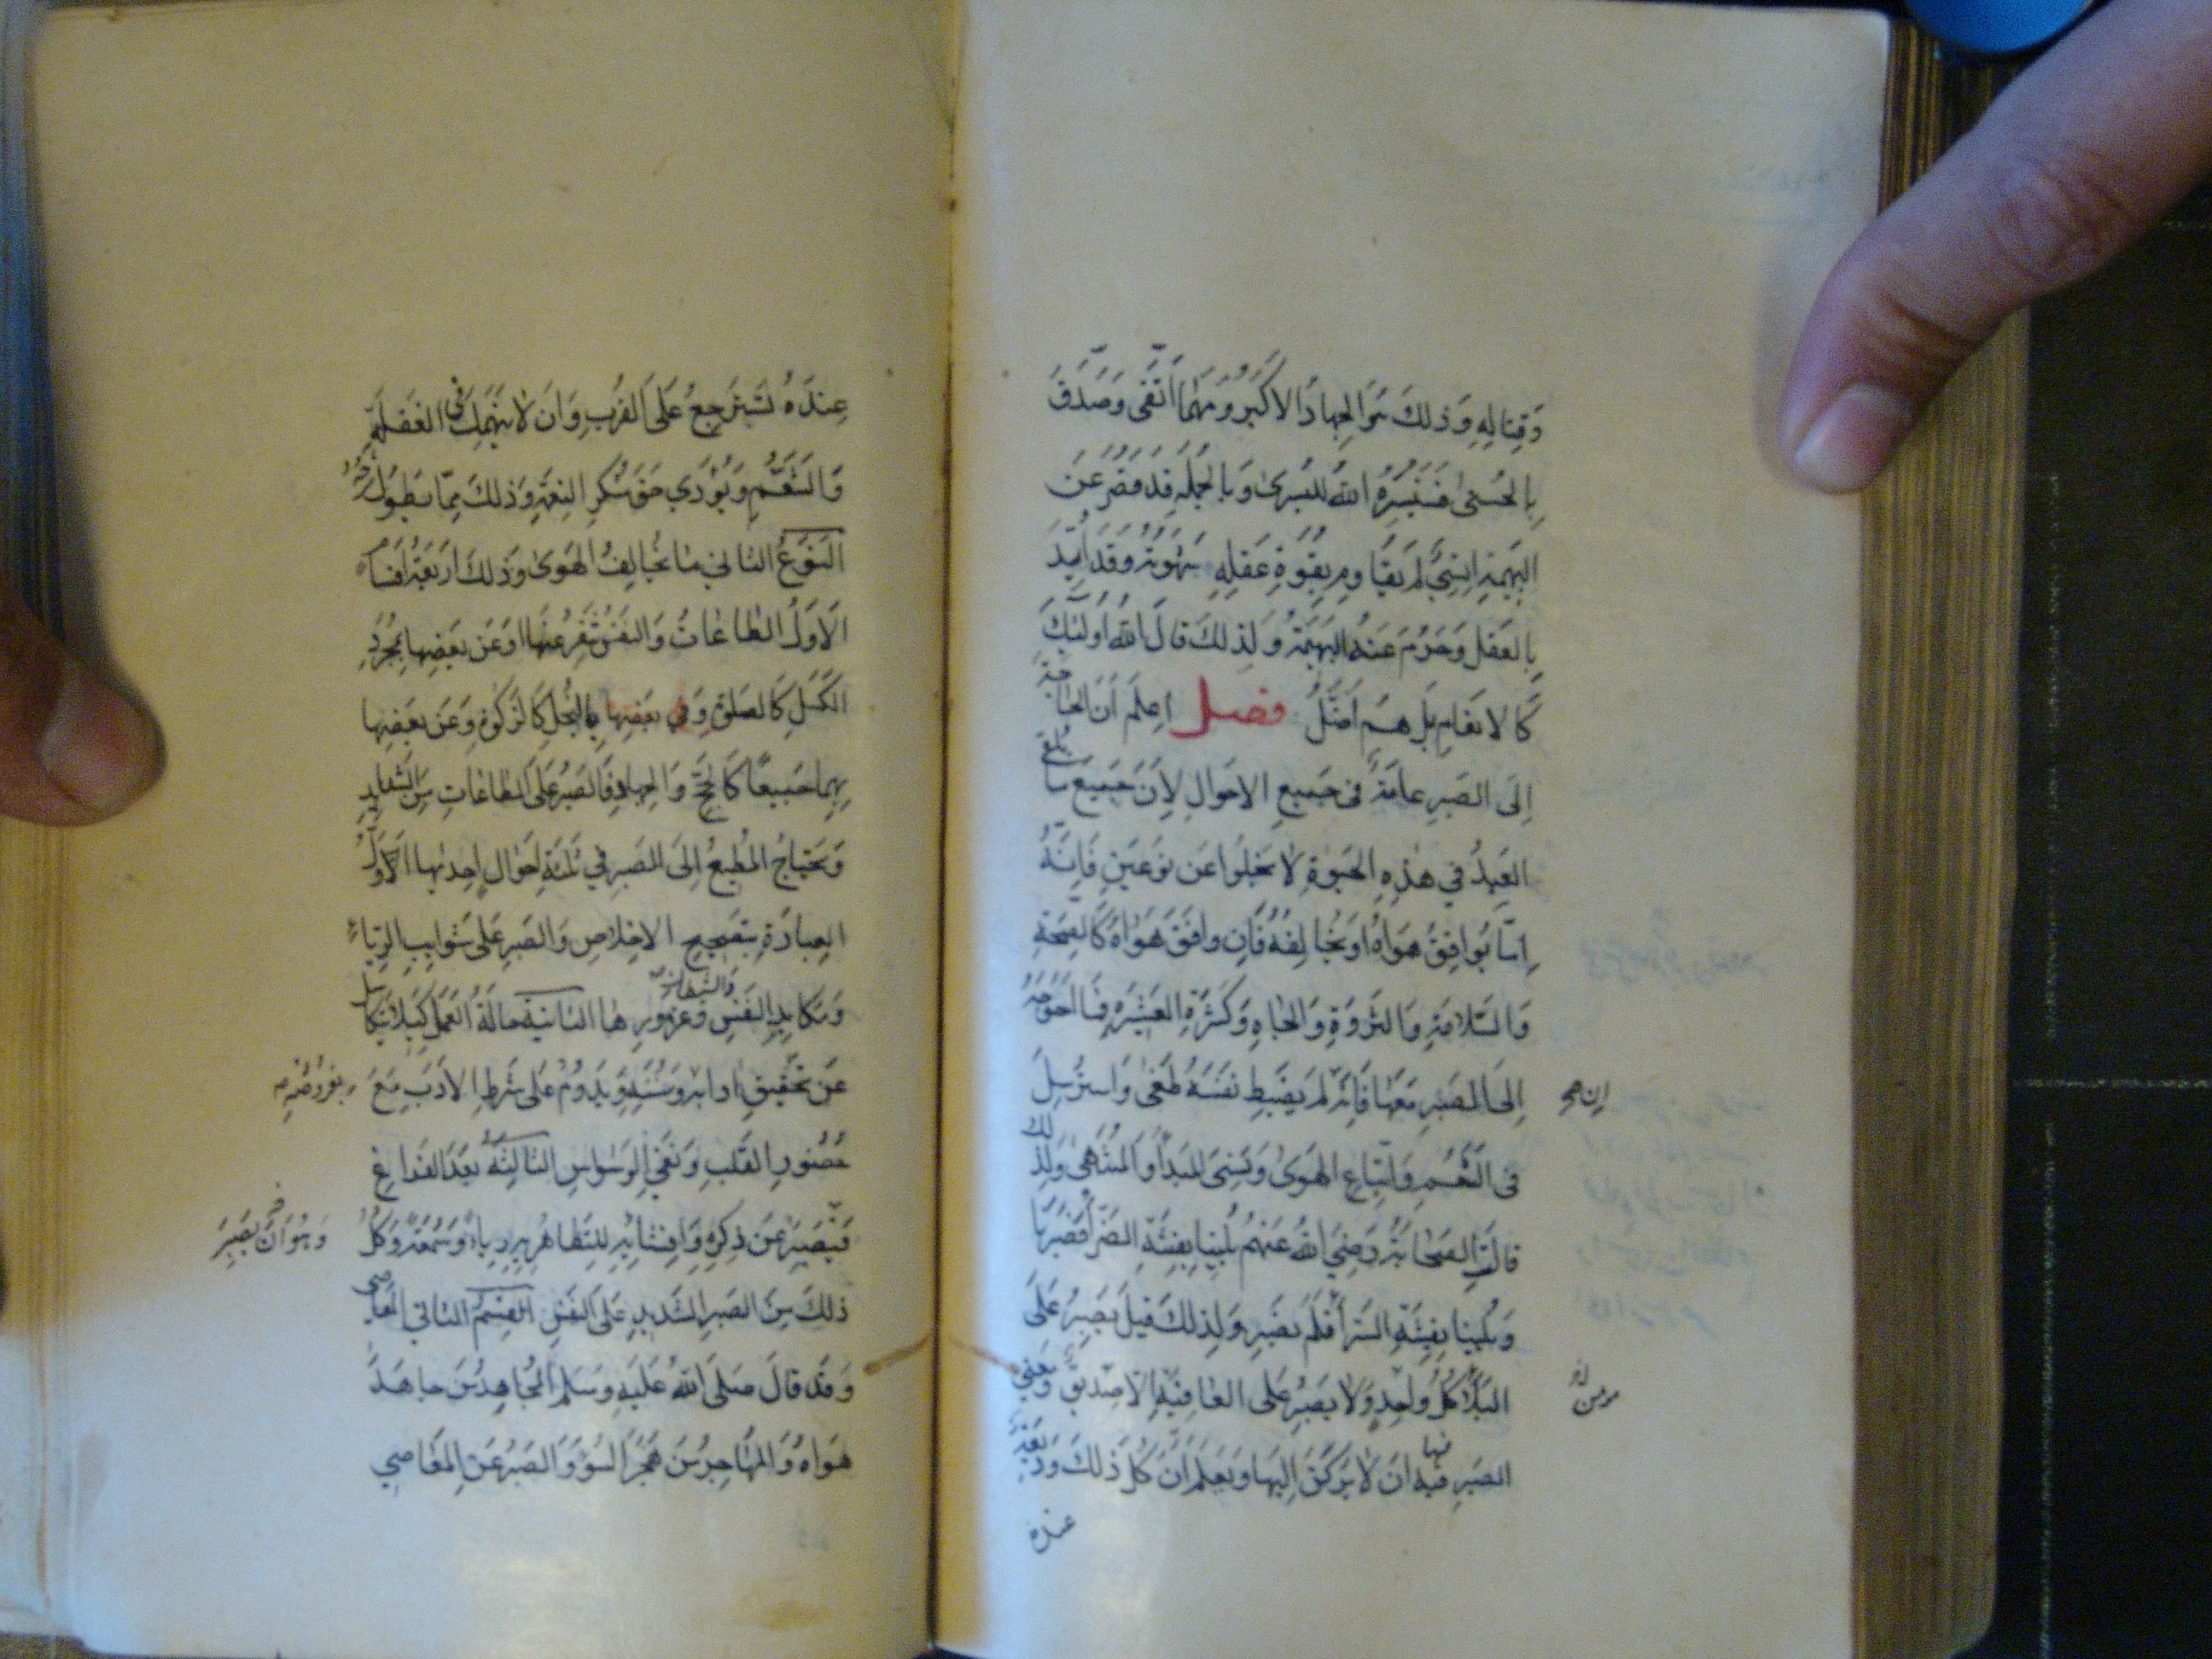 وَقِتَالِهِ وَذٰلِكَ هُوَ الجِهَادُ الاَكْبَرُ وَمَهْمَا اَتَّقٰى وَصَدَّقَ
بِالحُسْنٰى فَسَنُيَسِّرُهُ اللّٰهُ لِليُسْرٰى وَبِالجُمْلَةِ قَدْ قَصُرَ عَنِ
البَهِيمَةِ اِنْسِيٌّ لَمْ يُقَاوِمْ بِقُوَّةِ عَقْلِهِ شَهْوَتَهُ وَقَدْ اُيِّدَ
بِالعَقْلِ وَحَرُمَ عَنْهُ البَهِيمَةُ وَلِذٰلِكَ قَالَ اللّٰهُ اُولٰئِكَ
كَالاَنْعَامِ بَلْ هُمْ اَضَلُّ فصل اِعْلَمْ اَنَّ الحَاجَةَ
اِلَى الصَّبْرِ عَامَّةٌ فى جَمِيعِ الاَحْوَالِ لِاَنَّ جَمِيعَ مَا يَلْقٰى
العَبْدُ فِي هٰذِهِ الحَيٰوةِ لاَ يَخْلُوا عَنْ نَوْعَيْنِ فَاِنَّهُ
اِمَّا يُوَافِقُ هَوَاهُ اَوْ يُخَالِفُهُ فَاِنْ وَافَقَ هَوَاهُ كَالصِّحَّةِ
وَالسَّلاَمَةِ وَالثَّرْوَةِ وَالجَاهِ وَكَثْرَةِ العَشِيرَةِ فَمَا اَحْوَجَهُ
اِلَى الصَّبْرِ مَعَهَا فَاِنَّهُ لَمْ يَضْبِطْ نَفْسَهُ طَغٰى وَاسْتَرْسَلَ
ان صح
فِى التَّنَعُّمِ وَاتِّبَاعِ الهَوٰى وَنَسِيَ المَبْدَأَ وَالمُنْتَهٰى وَلِذٰلِكَ
قَالَتِ الصَّحَابَةُ رَضِيَ اللّٰهُ عَنْهُمْ بُلِينَا بِفِتْنَةِ الضَّرَّاءِ فَصَبَرْنَا
وَبُلِينَا بِفِتْنَةِ السَّرَّاءِ فَلَمْ نَصْبِرْ وَلِذٰلِكَ قِيلَ يَصْبِرُ عَلَى
البَلاَءِ كُلُّ وَاحِدٍ وَلاَ يَصْبِرُ عَلَى العَافِيَةِ اِلاَّ صِدِّيقٌ وَمَعْنَى
مؤمن
الصَّبْرِ فِيهِ اَنْ لاَ يَرْكَنَ اِلَيْهَا وَيَعْلَمَ اَنَّ كُلَّ ذٰلِكَ وَدِيعَةٌ
فيها
عنده
عِنْدَهُ يُسْتَرْجَعُ عَلَى القُرْبِ وَاَنْ لاَ يَنْهَمِكَ فِى الغَفْلَةِ
وَالتَّنَعُّمِ وَيُؤَدِّي حَقَّ شُكْرِ النِّعْمَةِ وَذٰلِكَ مِمَّا يَطُولُ شَرْحُهُ
النَّوْعُ الثَّانِي مَا يُخَالِفُ الهَوٰى وَذٰلِكَ اَرْبَعَةُ اَقْسَامٍ
الاَوَّلُ الطَّاعَاتُ وَالنَّفْسُ تَنْفِرُ عَنْهَا اَوْ عَنْ بَعْضِهَا بِمُجَرَّدِ
الكَسَلِ كَالصَّلٰوةِ وَفِي بَعْضِهَا بِالبُخْلِ كَالزَّكٰوةِ وَعَنْ بَعْضِهَا
بِهِمَا جَمِيعًا كَالحَجِّ وَالجِهَادِ فَالصَّبْرُ عَلَى الطَّاعَاتِ مِنَ الشَّدَايِدِ
وَيَحْتَاجُ المُطِيعُ اِلَى الصَّبْرِ فِي ثَلٰثَةِ اَحْوَالٍ اِحْدٰيهَا اَوَّلُ
العِبَادَةِ بِتَصْحِيحِ الاِخْلاَصِ وَالصَّبْرِ عَلَى شَوَايِبِ الرِّيَاءِ
وَمَكَايِدِ النَّفْسِ وَغُرُورِهَا الثَّانِيَةُ حَالَةُ العَمَلِ كَيْلاَ يَتَكَاسَلَ
عَنْ تَحْقِيقِ اٰدَابِهِ وَسُنَنِهِ وَيَدُومُ عَلَى شَرْطِ الاَدَبِ مَعَ
وفروضه
حُضُورِ القَلْبِ وَنَفْيِ الوَسْوَاسِ الثَّالِثَةُ بَعْدَ الفَرَاغِ
فَيَصْبِرُ عَنْ ذِكْرِهِ وَاِفْشَائِهِ لِلتَّظَاهُرِ بِهِ رِيَاءً وَسُمْعَةً وَكُلُّ
وَهُوَ اَنْ يَصْبِرَ
ذٰلِكَ مِنَ الصَّبْرِ الشَّدِيدِ عَلَى النَّفْسِ القِسْمُ الثَّانِي المَعَاصِي
وَقَدْ قَالَ صَلَّى اللّٰهُ عَلَيْهِ وَسَلَّمَ المُجَاهِدُ مَنْ جَاهَدَ
هَوَاهُ وَالمُهَاجِرُ مَنْ هَجَرَ السُّوءَ وَالصَّبْرُ عَنِ المَعَاصِي